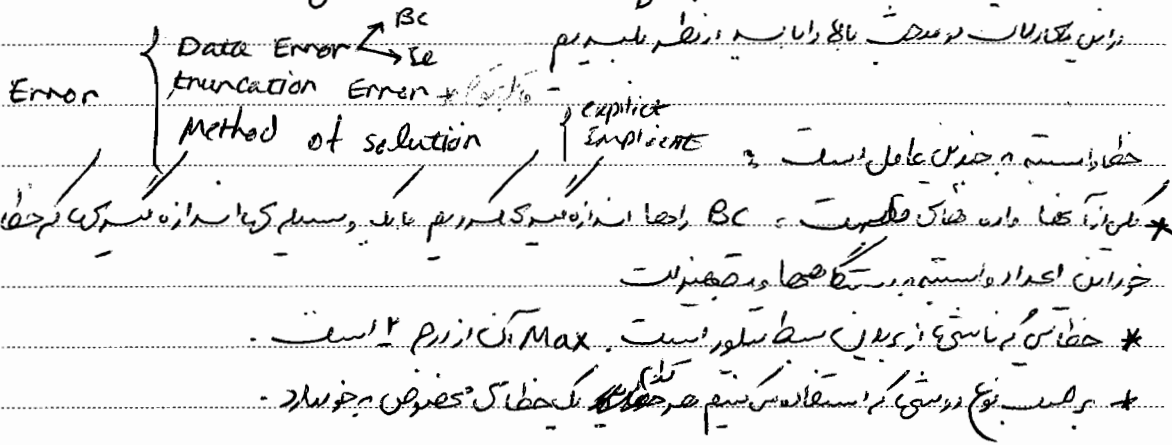 در این مکان در مبحث باید از نظر
Error { Data Error → BC
→ Ie
truncation Error
Method of solution { expilict
Implicite
خطا وابسته به چندین عامل است :
* یکی از آنها داده های است ، BC را ما اندازه گیری کردیم با یک وسیله ی اندازه گیری که خطا
خود این اعداد وابسته به دستگاهها و تجهیزات
* خطایی که ناشی از بریدن بسط تیلور است . Max آن از درجه ۲ است .
* برحسب نوع روشی که استفاده می کنیم هر کدام یک خطای مخصوص به خود دارد .